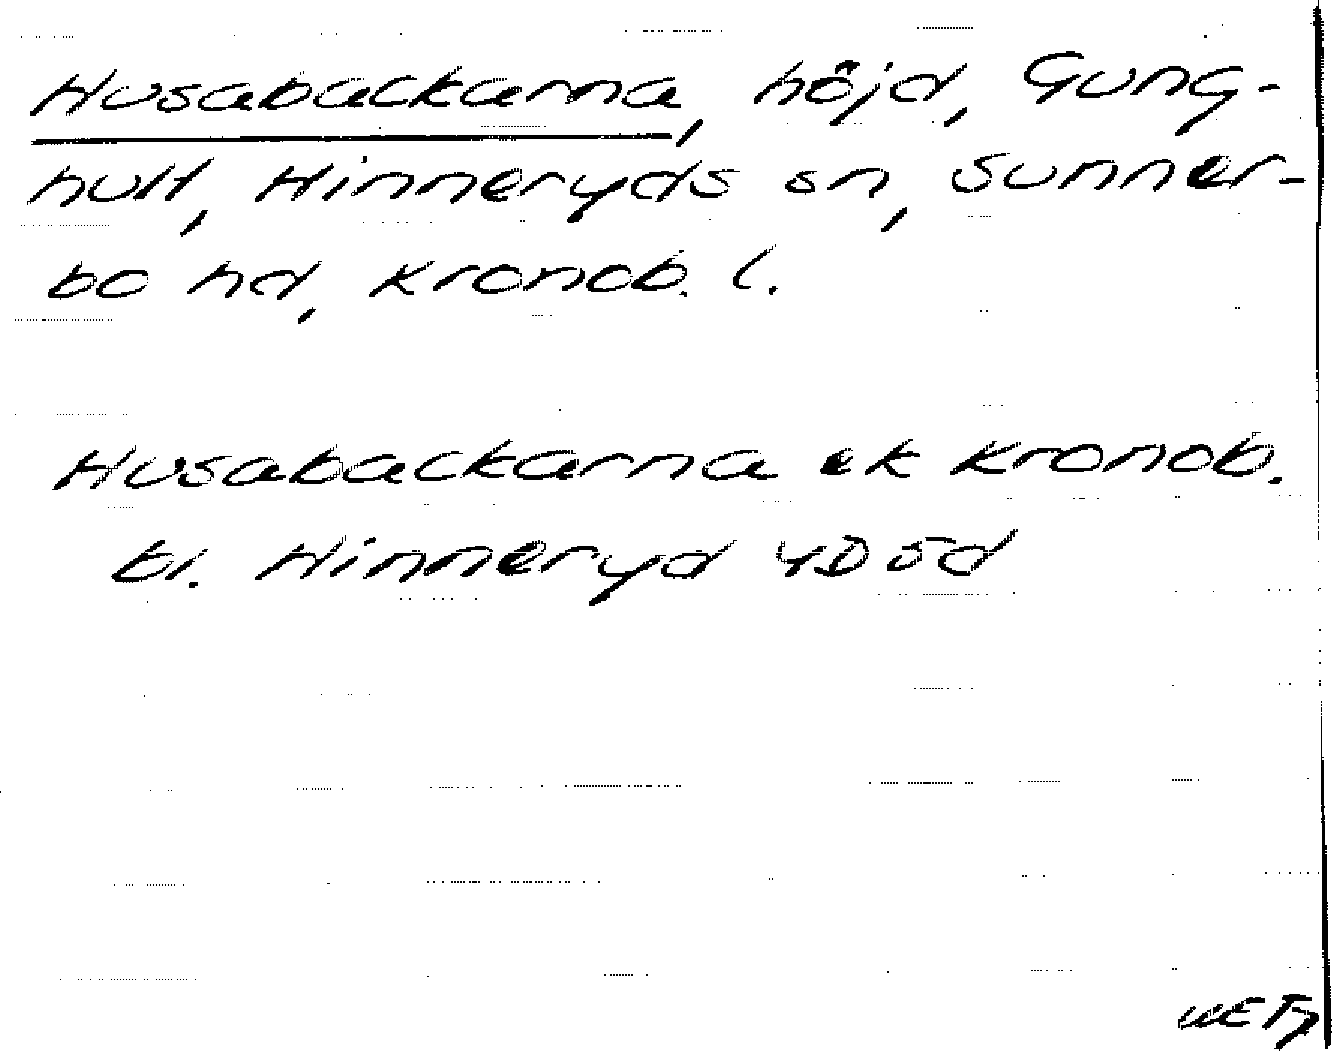 Husabackarna, höjd, Gung-
hult, Hinneryds sn, Sunner-
bo hd, Kronob. l.
Husabackarna ek Kronob.
bl. Hinneryd 4D 5d